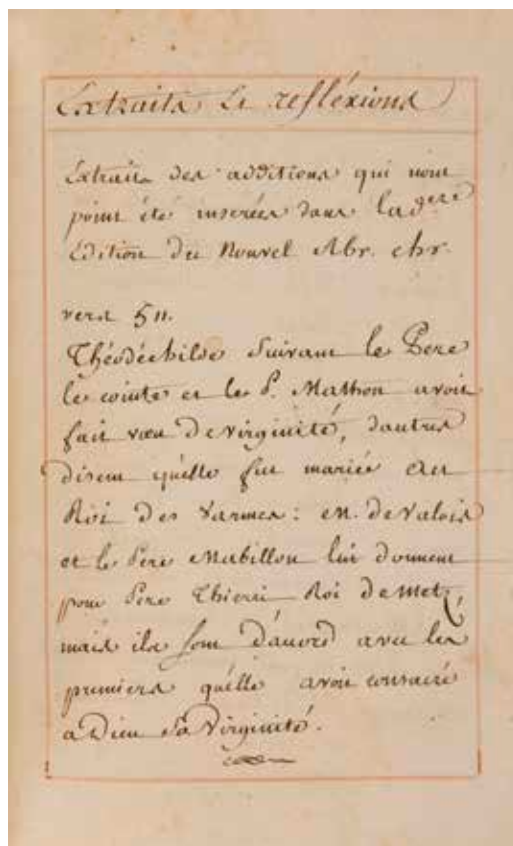 Extraits Et refléxions
Extrait des additions qui n'ont
point été inserées dans la dere
Edition du Nouvel Abr. chr.
vers 511.
Théodéchilde Suivant le Pere
le cointe et le P. Mathon avoit
fait vœu de virginité, dautres
disent quélle fut mariée au
Roi des Varnes : M. de Valois
et le Pere Mabillon lui donnent
pour Pere Thierri Roi de Metz,
mais ils sont d'acord avec les
premiers quélle avoit consacré
a Dieu sa Virginité.